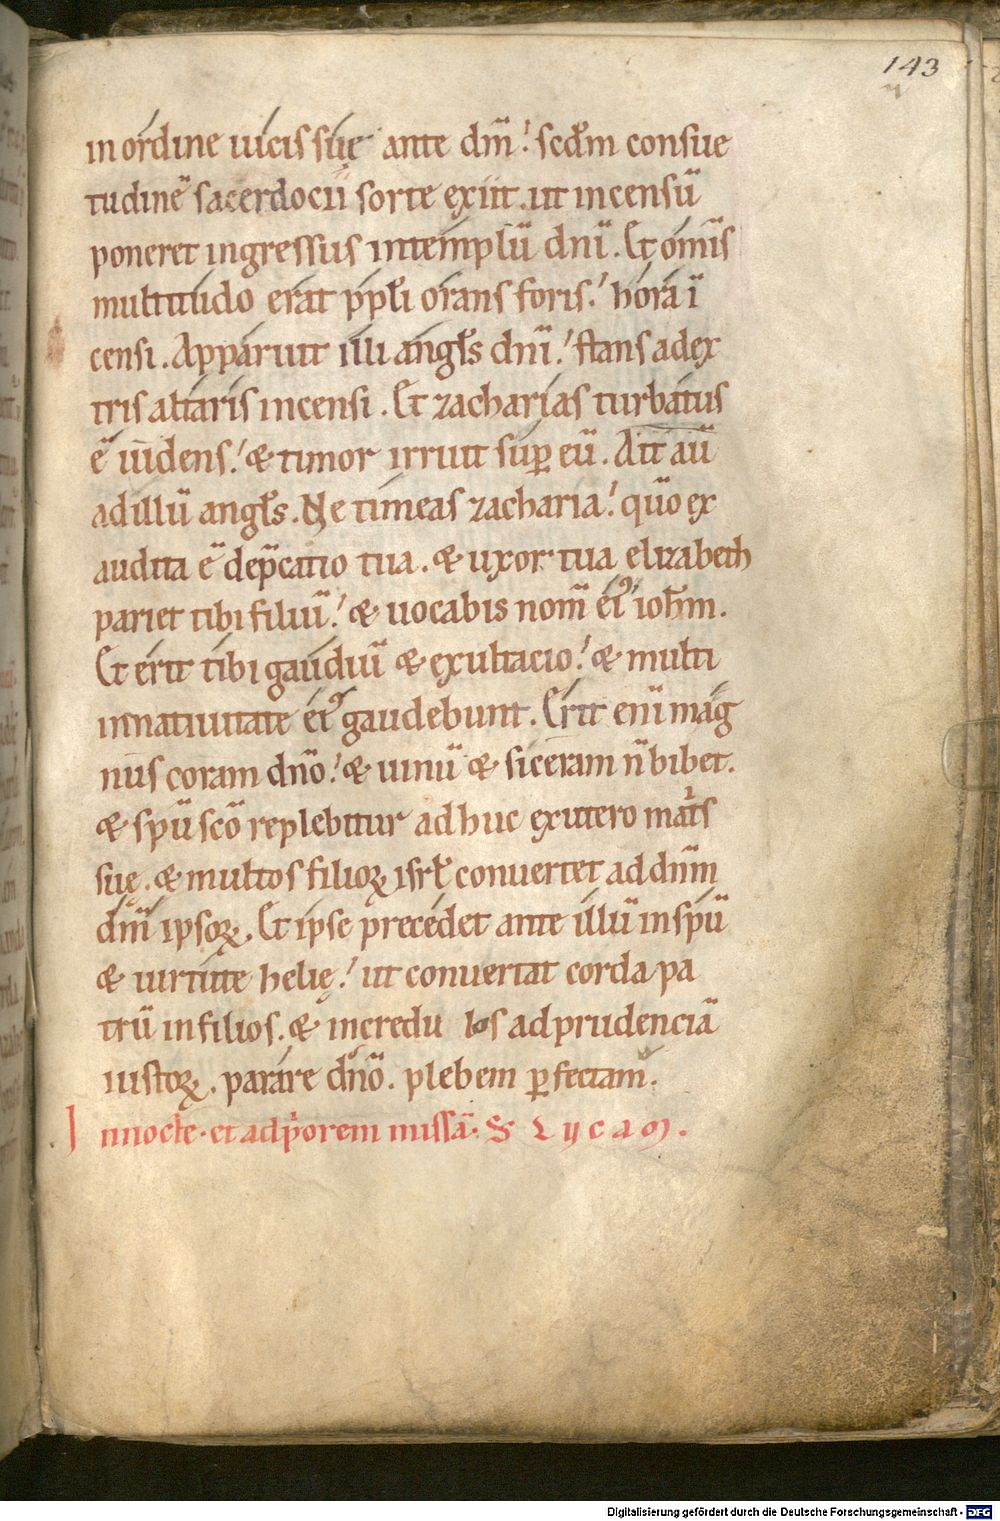 143
in ordine uicis suę ante dm̄. scd̄m consue
tudinē sacerdocii sorte exiit. ut incensū
poneret ingressus in templū dnī. Et om̄is
multitudo erat ppłi orans foris. hora ī
censi. Apparuit illi angłs dnī. stans adex
tris altaris incensi. Et zacharias turbatus
ē uidens. & timor irruit suꝑ eū. Ait aū
ad illū angłs. Ne timeas zacharia. qūo ex
audita ē dep̄catio tua. & uxor tua elizabeth
pariet tibi filiū. & uocabis nom̄ ei᾽ ioh̄m.
Et erit tibi gaudiū & exultacio. & multi
in natiuitate ei᾽ gaudebunt. Erit enī mag
nus coram dnō. & uinū & siceram n̄ bibet.
& spū scō replebitur adhuc ex utero mat̄s
suę. & multos filioꝝ isrł conuertet ad dn̄m
dm̄ ipsoꝝ. Et ipse precedet ante illū in spū
& uirtute helię. ut conuertat corda pa
trū in filios. & incredu los ad prudenciā
iustoꝝ. parare dnō. plebem ꝑfectam.
In nocte. et ad p̓orem missā. S Lycam.
Digitalisierung gefördert durch die Deutsche Forschungsgemeinschaft - DFG